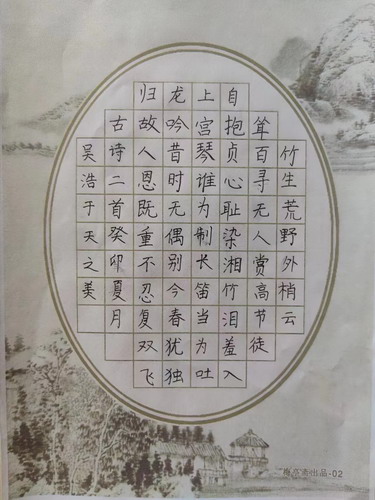 竹生荒野外梢云
耸百寻无人赏高节徒
自抱贞心耻染湘竹泪羞入
上宫琴谁为制长笛当为吐
龙吟昔时无偶别今春犹独
归故人恩既重不忍复双飞
古诗二首癸卯夏月
吴浩于天之美
出品-02